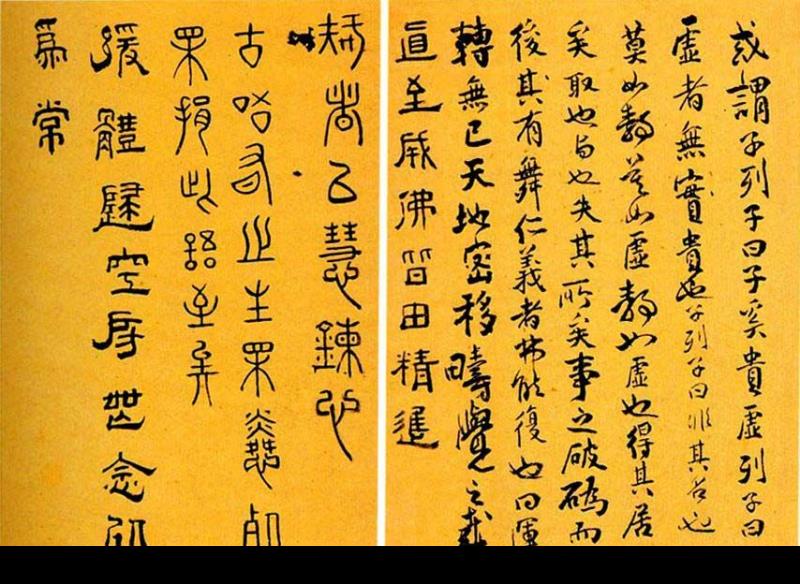 或謂子列子曰子奚貴虛列子曰
虛者無實貴也子列子曰非其名也
莫如靜莫如虛靜也虛也得其居
矣取也与也失其所矣事之破䃣而
後其有舞仁義者弗能復也曰運
轉無已天地密移疇覺之哉
直至成佛皆由精進
者以慧鍊心
古之主
捐此至矣
體空房世念
為常